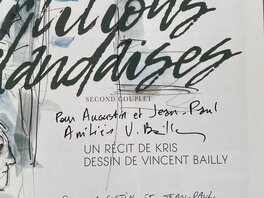 landaises
SECOND COUPLET
Pour Augustin et Jean-Paul
Amitiés V. Bailly
UN RÉCIT DE KRIS
DESSIN DE VINCENT BAILLY
ET JEAN-PAUL